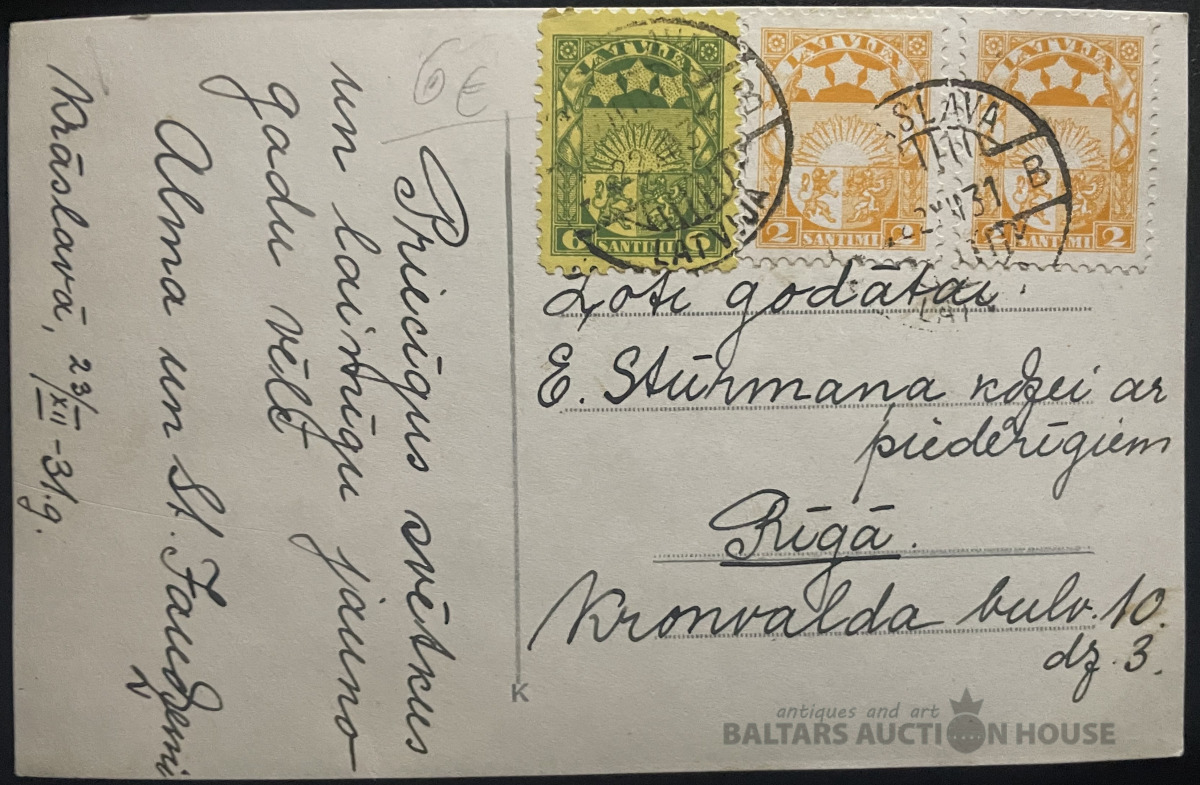 6€
Priecīgus svētkus
un laimīgu jauno
gadu vēlē
Alma un St.
Krāslavā, 23/XII-31.g.
LATVIJA
6 SANTIMI 6
LATVIJA
2 SANTIMI 2
LATVIJA
2 SANTIMI 2
B
LATVIJA
SLAVA
B
31
LAT
Ļoti godātai
E. Stūrmana kdzei ar
piederīgiem
Rīgā.
Kronvalda bulv. 10.
dz. 3.
K
antiques and art
BALTARS AUCTION HOUSE